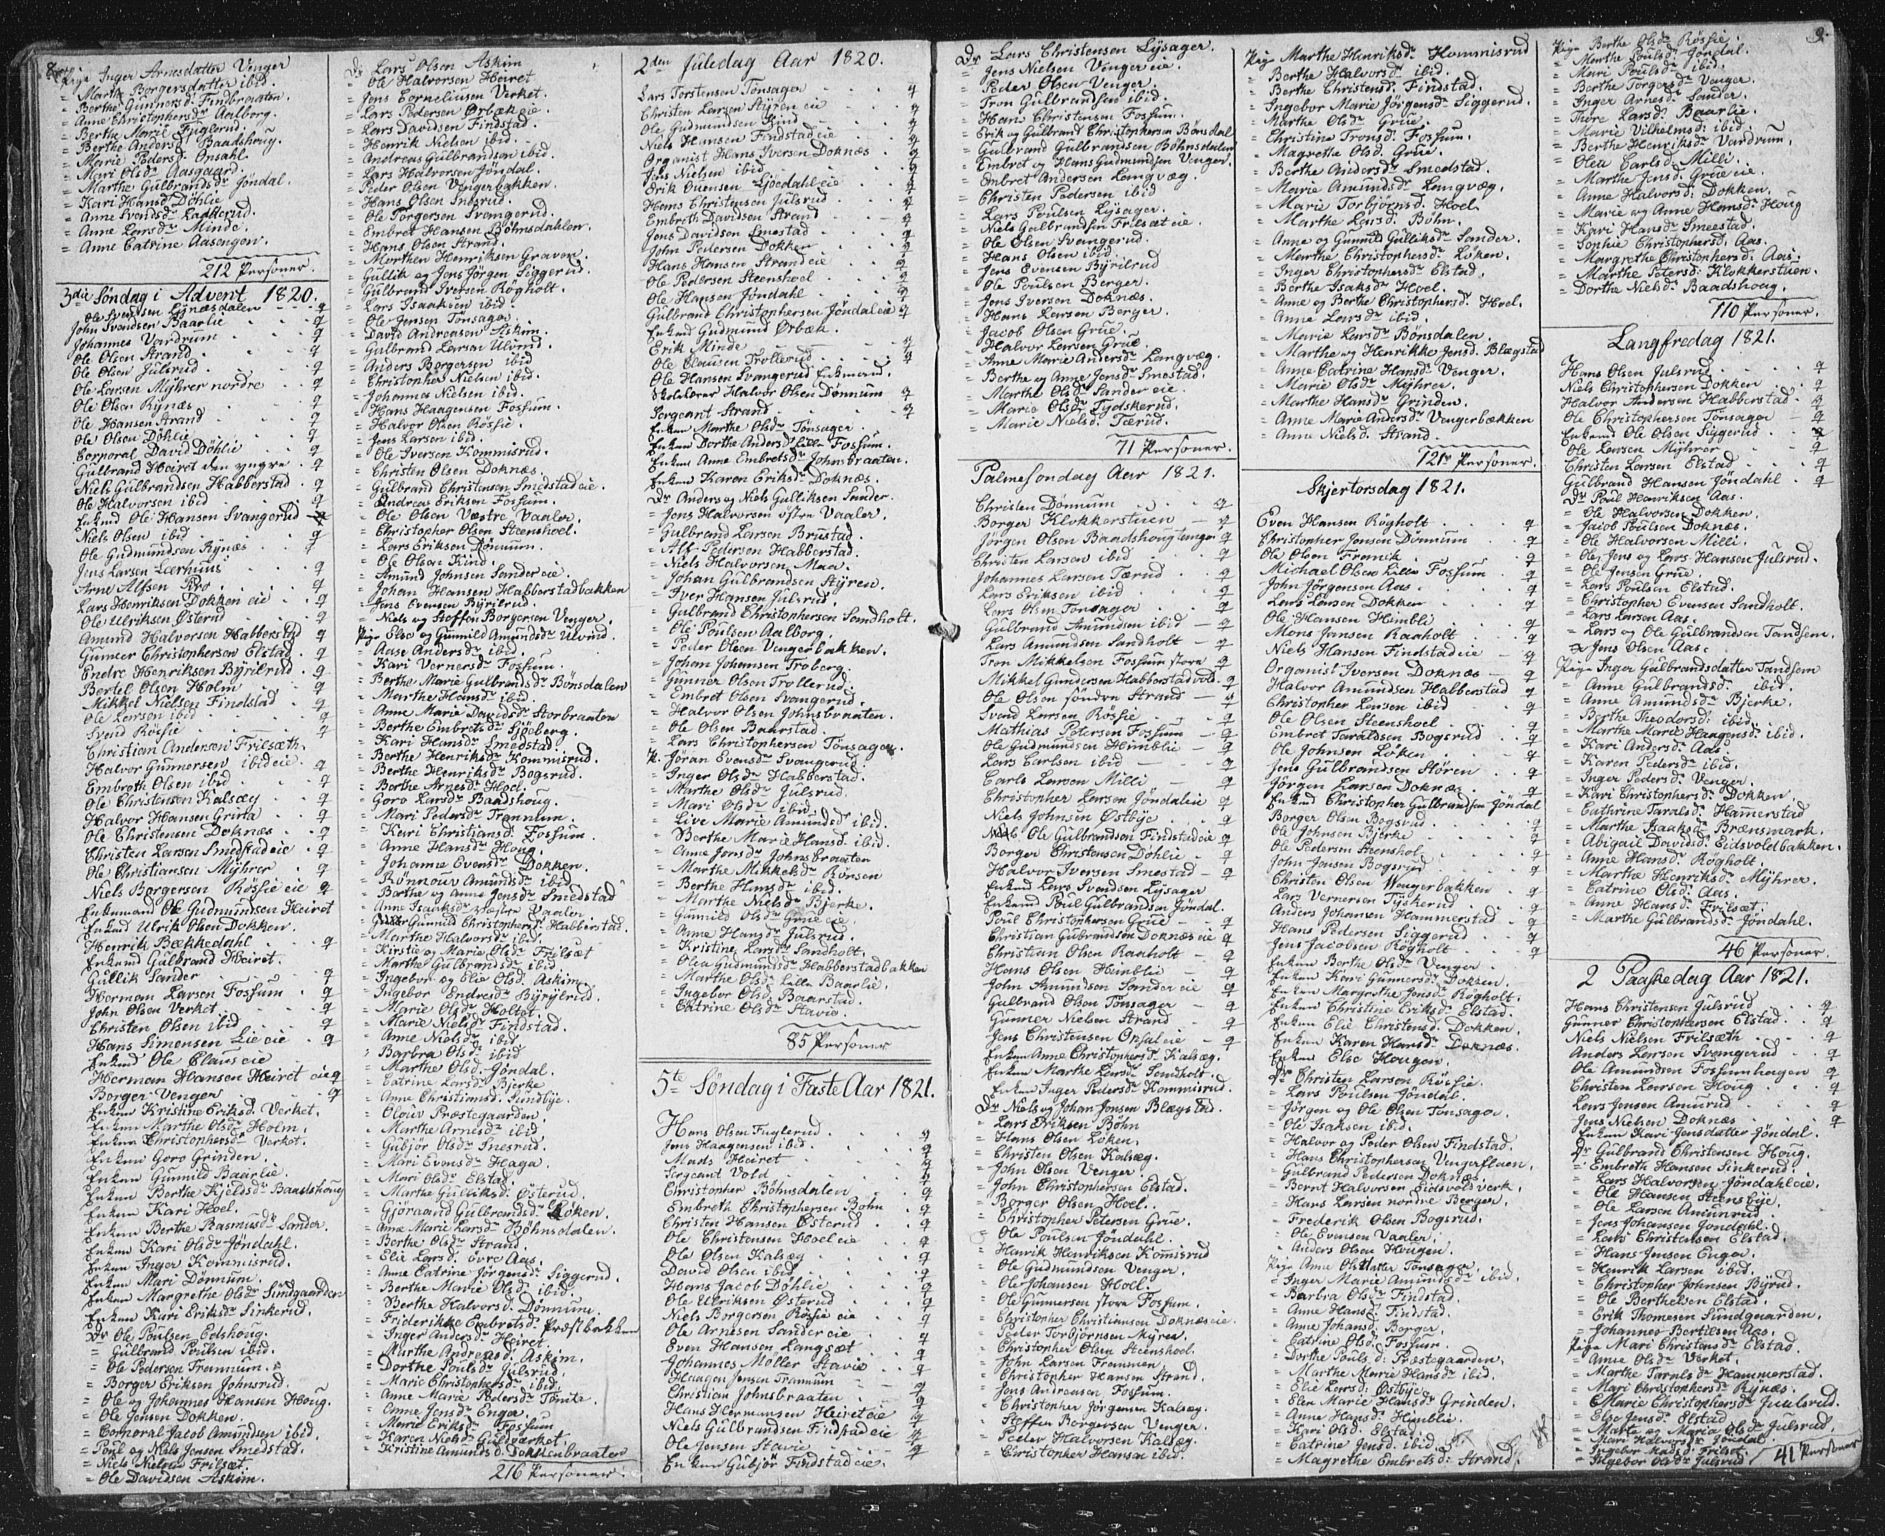 Pige Inger Arnesdatter Venger
= Marthe Borgersdatter ibid
= Berthe Gunnersd: Findbraaten.
= Anne Christophersdr Aalborg.
= Berthe Marie Fuglerud.
= Berthe Andersdr Baadshoug.
= Marie Pedersd: Onsahl.
= Mari Olsdr Aasgaard.
= Marthe Gulbrandsdr Jöndal.
= Kari Hansdr Döhlie
= Anne Svendsdr Ladkerud.
= Anne Larsdr Minde.
= Anne Catrine Aasengen.
212 Personer.
3die Söndag i Advent 1820.
Ole Svendsen Lynæsdalen - - q
John Svendsen Baarlie - - q
Johannes Vardrum - - q
Ole Olsen Strand - - q
Ole Olsen Julsrud - - q
Ole Larsen Mÿhrer nordre - - q
Ole Olsen Rÿnæs - - q
Ole Hansen Strand - - q
Ole Olsen Döhlie - - q
Corporal David Döhlie - q
Gulbrand Heiret den yngre - q
Niels Gulbrandsen Habberstad - q
Ole Halvorsen ibid - - q
Enkemd Ole Hansen Svangerud - q
Niels Olsen ibid - - q
Ole Gudmundsen Rÿnæs - - q
Jens Larsen Leerhuus - - q
Arne Alfsen Bro - - q
Lars Henriksen Dokken eie - q
Ole Ulriksen Østerud - - q
Amund Halvorsen Habberstad q
Gunner Christophersen Elstad - q
Endre Henriksen Bÿrilrud - q
Bertel Olsen Holm - - q
Mikkel Nielsen Findstad - q
Ole Larsen ibid - - q
Svend Rösfie - - q
Christian Andersen Frilsæth
Halvor Gunnersen ibid eie - q
Embreth Olsen ibid - - q
Ole Christensen Kalsæg - q
Halvor Hansen Grina - - q
Ole Christensen Doknæs - - q
Christen Larsen Smedstad eie - q
Ole Christiansen Mÿhrer - q
Niels Borgersen Rösfie eie q
Enkemand Ole Gudmundsen Heiret
Enkemd Ulrik Olsen Dokken.
Henrik Bækkedahl - - q
Enkemd Gulbrand Heiret.
Gullik Sander - - q
Herman Larsen Fossum - - q
John Olsen Verket - - q
Christen Olsen ibid - - q
Hans Simensen Lie eie - - q
Enkemd Ole Claus eie
Herman Hansen Heiret eie q
Borger Venger - - q
Enken Kristine Eriksd: Verket.
Enken Marthe Olsdr Holm.
Enken Christophersdr Verket.
Enken Goro Grinden.
Enken Gunild Baarlie.
Enken Berthe Kjeldsdr Baadshoug
Enken Kari Hoel.
Enken Berthe Rasmusdr Sander.
Enken Kari Olsdr Jöndahl.
Enken Inger Kommisrud.
Enken Mari Dönnum.
Enken Margrethe Olsdr Sundgaarden
Enken Kari Eriksdr Sinkerud.
Dr Ole Poulsen Edshoug.
= Gulbrand Poulsen ibid.
= Ole Pedersen Frennum.
= Borger Eriksen Johnsrud.
= Ole og Johannes Hansen Houg.
= Ole Jensen Dokken.
= Corporal Jacob Amundsen ibid
= Poul og Niels Jensen Smedstad.
= Niels Nielsen Frilsæt.
= Ole Davidsen Askim.
Dr Lars Olsen Askim
= Ole Halvorsen Heiret
= Jens Corneliusen Verket.
= Lars Pedersen Ørbæk eie.
= Lars Davidsen Findstad.
= Henrik Nielsen ibid.
= Andreas Gulbrandsen ibid.
= Lars Halvorsen Jöndal.
= Peder Olsen Vengerbakken.
= Hans Olsen Inesrud.
= Ole Torgersen Svangerud.
= Embret Hansen Böhnsdahlen.
= Hans Olsen Strand.
= Morthen Henriksen Graven.
= Gullik og Jens Jörgen Siggerud.
= Gulbrand Iversen Rögholt.
= Lars Isaaksen ibid.
= Ole Jensen Tonsager.
= David Andreasen Askim.
= Gulbrand Larsen Ulvind.
= Anders Borgersen ibid
= Christopher Nielsen ibid.
= Johannes Nielsen ibid.
= Hans Haagensen Fossum.
= Halvor Olsen Rösfie.
= Jens Larsen ibid.
= Ole Iversen Kommisrud.
= Christen Olsen Doknæs.
= Gulbrand Christensen Smedstad eie.
= Andreas Eriksen Fossum.
= Ole Olsen Væstre Vaaler.
= Christopher Olsen Steenshoel.
= Lars Eriksen Dönnum.
= Ole Olsen Kind.
= Amund Johnsen Sander eie.
= Johan Hansen Habberstadbakken
= Jens Evensen Bÿrilrud.
= Niels og Steffen Borgersen Venger.
Pige Else og Gunnild Amundsdr Ulvind.
= Aase Andersdr ibid.
= Kari Vernersdr Fossum.
= Berthe Marie Gulbrandsdr Bönsdalen
= Marthe Hansdr ibid
= Anne Marie Davidsdr Storbraaten
= Berthe Embretsdr Sjöberg.
= Kari Hansdr Smedstad
= Berthe Henriksdr Kommisrud.
= Berthe Henriksdr Bogsrud.
= Berthe Arnesdr Hoel.
= Goro Larsdr Baadshoug.
= Mari Pedersdr Trannum.
= Kari Christiansdr Fossum.
= Anne Hansdr Houg.
= Johanne Evensdr Dokken.
= Rönnouv Amundsdr ibid.
= Berthe og Anne Jensdr Smedstad
= Anne Isaaksdr væstre Vaaler
= Gunnild Christophersdr Habberstad.
= Marthe Halvorsdr ibid.
= Kirsti og Marie Olsdr Frilsæt
= Marthe Gulbrandsdr ibid
= Ingebor og Elie Olsd. Askim.
= Ingebor Endresdr Bÿrilrud.
= Marie Olsdr Holtet.
= Marie Nielsdr Findstad.
= Anne Nielsdr ibid
= Barbra Olsdr ibid
= Marthe Olsdr Jöndal.
= Catrine Larsdr Bjerke
= Anne Christiansdr Sundbÿe.
= Olouv Præstegaarden.
= Marthe Arnesdr ibid.
= Gubjör Olsdr Inesrud.
= Mari Evensdr Haga.
= Mari Olsdr Elstad.
= Marthe Gulliksdr Østerud.
= Gjöraand Gulbrandsdr Löken.
= Anne Marie Larsdr Böhnsdalen.
= Berthe Olsdr Strand.
= Elie Larsd. Evre Aas.
= Anne Catrine Jörgensdr Siggerud.
= Berthe Marie Olsdr ibid.
= Berthe Halvorsdr Dönnum.
= Friderikke Embretsdr Præstbakken
= Inger Andersdr Heiret.
= Marthe Andreasdr Askim.
= Dorthe Poulsdr Julsrud.
= Marie Christophersdr ibid.
= Anne Marie Pedersdr Tömte.
= Anne Jensdr Enger.
= Marie Eriksdr Fossum
= Karen Nielsdr Guldværket.
= Kristine Amundsdr Dokkenbraaten
216 Personer.
2den Juledag Aar 1820.
Lars Torstensen Tönsager - - q
Christen Larsen Styren eie - - q
Ole Gudmundsen Kind - - q
Niels Hansen Findstad eie - - q
Organist Hans Iversen Doknæs - - q
Jens Nielsen ibid - - q
Erik Ovensen Ljödahl eie - - q
Hans Christensen Julsrud - - q
Embreth Davidsen Strand - - q
Jens Davidsen Smestad - - q
John Pedersen Dokken - - q
Hans Hansen Strand eie - - q
Ole Pedersen Steenshoel - - q
Ole Hansen Jöndahl - - q
Gulbrand Christophersen Jöndal eie q
Enkemd Gudmund Ørbæk.
Erik Minde - - q
Ole Clausen Trollerud - - q
Ole Hansen Svangerud Enkemand.
Skolelærer Halvor Olsen Dönnum - q
Sergeant Strand - - q
Enken Marthe Olsdr Tonsager.
Enken Dorthe Andersdr Lille Fossum.
Enken Anne Embretsdr Johnsbraaten.
Enken Karen Eriksdr Doknæs.
Dr Anders og Niels Gulliksen Sander.
= Jens Halvorsen østre Vaaler.
= Gulbrand Larsen Brustad.
= Alf Pedersen Habberstad.
= Niels Halvorsen Maa.
= Johan Gulbrandsen Stÿren.
= Iver Hansen Julsrud.
= Gulbrand Christophersen Sandholt.
= Ole Poulsen Aalborg.
= Peder Olsen Vengerbakken.
= Johan Johansen Troberg.
= Gunner Olsen Trollerud.
= Embret Olsen Svangerud.
= Halvor Olsen Johnsbraaten.
= Ole Olsen Baarstad.
= Lars Christophersen Tönsager.
P. Jöran Evensdr Svangerud.
= Inger Olsdr Habberstad.
= Marthe Olsdr Julsrud.
= Mari Olsdr ibid.
= Live Marie Amundsdr ibid.
= Berthe Marie Hansd. ibid.
= Anne Jensdr Johnsbraaten
= Marthe Mikkelsdr Rönsen
= Berthe Hansdr ibid.
= Marthe Nielsdr Bjerke.
= Gunnild Olsdr Grue eie
= Anne Hansdr Julsrud.
= Kristine Larsdr Sandholt.
= Olea Gudmundsdr Habberstadbakken
= Marthe Olsdr Lille Baarlie.
= Ingebor Olsdr Baarstad.
= Catrine Olsdr Stavie.
85 Personer
5te Söndag i Faste Aar 1821.
Hans Olsen Fuglerud - - q
Jens Haagensen ibid - - q
Mads Heiret - - q
Sergeant Vold - - q
Christopher Böhnsdalen - - q
Embreth Christophersen Böhn - q
Christen Hansen Østerud - - q
Ole Christensen Hoel eie - - q
Ole Olsen Kalsæg - - q
David Olsen ibid - - q
Hans Jacob Döhlie - - q
Ole Ulriksen Østerud - - q
Niels Borgersen Rösfie eie - - q
Ole Arnesen Sander eie - - q
Even Hansen Langsæt - - q
Johannes Möller Stavie - - q
Haagen Jensen Trannum - - q
Christian Johnsbraaten - - q
Hans Hermansen Heiret eie q
Niels Gulbrandsen Findstad eie q
Ole Jensen Stavie - - q
Enken Gubjör Findstad eie.
Dr Lars Christensen Lÿsager.
= Jens Nielsen Venger eie.
= Peder Olsen Venger.
= Tron Gulbrandsen ibid
= Hans Christensen Fossum.
= Erik og Gulbrand Christophersen Bönsdal
= Gulbrand Gulbrandsen Böhnsdalen
= Embret og Hans Gudmundsen Venger.
= Embret Andersen Langvæg.
= Christen Pedersen ibid
= Lars Poulsen Lÿsager.
= Niels Gulbrandsen Frilsæt eie.
= Ole Olsen Svangerud.
= Hans Olsen ibid.
= Jens Evensen Bÿrilrud
= Ole Poulsen Berger.
= Jens Iversen Doknæs.
= Hans Larsen Berger.
= Jacob Olsen Grue.
= Halvor Larsen Grue
= Anne Marie Andersdr Langvæg.
= Berthe og Anne Jensdr Smestad.
= Marthe Olsdr Sander eie.
= Marie Olsdr Tydskerud.
= Marie Nielsd. Tærud.
71 Personer.
Palmesondag Aar 1821.
Christen Dönnum - - q
Borger Klokkerstuen - - q
Jörgen Olsen Baadshougtangen q
Christen Larsen ibid - - q
Johannes Larsen Tærud - - q
Lars Eriksen ibid - - q
Lars Olsen Tonsager - - q
Gulbrand Amundsen ibid - q
Lars Amundsen Sandholt - q
Tron Mikkelsen Fossum store q
Mikkel Gundersen Habberstad q
Ole Olsen söndre Strand - q
Svend Larsen Rösfie - - q
Mathias Petersen Fossum - q
Ole Gudmundsen Himblie - q
Lars Carlsen ibid - - q
Carls Larsen Milli - - q
Christopher Larsen Jöndal eie q
Niels Johnsen Østbÿe - - q
Ole Gulbrandsen Findstad eie q
Borger Christensen Döhlie - q
Halvor Iversen Smestad - q
Enkemd Lars Svendsen Lysager
Enkemd Poul Gulbrandsen Jöndal.
Poul Christophersen Grue - - q
Christian Gulbrandsen Doknæs eie q
Christian Olsen Raaholt - q
Hans Olsen Himblie - - q
John Amundsen Sander eie - q
Gulbrand Olsen Tönsager - q
Gunner Nielsen Strand - - q
Jens Christensen Onsal eie - q
Enken Anne Christophersd. Kalsæg.
Enken Marthe Larsdr Sandholt.
Enken Inger Pedersdr Kommisrud.
Dr Niels og Johan Jensen Blægstad.
= Lars Eriksen Böhn
= Hans Olsen Löken.
= Christen Olsen Kalsæg.
= John Olsen Venger.
= John Christophersen Elstad.
= Borger Olsen Hoel.
= Christopher Petersen Grue.
= Ole Poulsen Jöndahl.
= Henrik Henriksen Kommisrud
= Ole Gudmundsen Venger.
= Ole Johansen Hoel.
= Ole Gunnersen store Fossum.
= Christopher Christiansen Doknæs eie.
= Peder Torbjörnsen Mÿrer.
= Christopher Olsen Steenshoel.
= John Larsen Frammen.
= Christopher Hansen Strand.
= Jens Andreasen Fossum.
= Christopher Jörgensen Kalsæg.
= Steffen Borgersen Venger.
= Peder Halvorsen Kalsæg.
= Christopher Hansen ibid.
Pige Marthe Henriksdr Kommisrud
= Berthe Halvorsdr ibid.
= Berthe Christensdr Findstad.
= Ingebor Marie Jörgensdr Siggerud.
= Marthe Olsdr Grue.
= Christine Tronsdr Fossum.
= Magrethe Olsd. Grue.
= Berthe Andersdr Smedstad.
= Marie Amundsdr Langvæg.
= Marie Torbjörnsd. Hoel
= Marthe Larsdr Böhn.
= Anne og Gunnild Gulliksdr Sander.
= Marthe Christophersdr Löken.
= Inger Christophersdr Elstad.
= Berthe Isaksdr Hoel.
= Anne og Berthe Christophersdr Hoel.
= Anne Larsdr ibid.
= Marie Larsdr Bönsdalen.
= Marthe og Henrikke Jensd. Blægstad
= Anne Catrine Hansdr Venger.
= Marie Olsdr Mÿhrer.
= Marthe Hansdr Grinden.
= Anne Marie Andersdr Vengerbækken
= Anne Nielsdr Strand.
121 Personer.
Skjertorsdag 1821.
Even Hansen Rögholt - - q
Christopher Jensen Dönnum - q
Ole Olsen Franck - - q
Michael Olsen Lille Fossum - q
John Jörgensen Aas - - q
Lars Larsen Dokken - - q
Ole Hansen Himbli - - q
Mons Jansen Raaholt - - q
Niels Hansen Findstad eie - q
Organist Iversen Doknæs - q
Halvor Amundsen Habberstad q
Christopher Larsen ibid - q
Ole Olsen Steenshoel - - q
Embret Taraldsen Bogsrud - q
Ole Johnsen Löken - - q
Jens Gulbrandsen Stÿren - q
Jörgen Larsen Doknæs - q
Enkemd Christopher Gulbrandsen Jöndal
Borger Olsen Bogsrud - - q
Ole Johnsen Bjerke - - q
Ole Pedersen Steenshol - - q
John Jensen Bogsrud - - q
Christen Olsen Wengerbakken - q
Lars Vernersen Tÿskerud - q
Anders Johansen Hammerstad - q
Hans Pedersen Siggerud - q
Jens Jacobsen Rögholt - - q
Enken Berthe Olsdr Venger.
Enken Kari Gunnersd. Dokken.
Enken Margrethe Jensdr Rögholt.
Enken Christine Eriksdr Elstad.
Enken Elie Christensd. Dokken.
Enken Karen Hansdr Doknæs.
Enken Else Hougen.
Dr Christen Larsen Rösfie.
= Lars Poulsen Jöndal.
= Jörgen og Ole Olsen Tönsager.
= Ole Isaksen ibid.
= Halvor og Peder Olsen Findstad.
= Hans Christophersen Vengerflaen.
= Gulbrand Pedersen Doknæs.
= Bernt Halvorsen Eidsvoldverk.
= Hans Larsen nordre Berger.
= Frederik Olsen Bogsrud.
= Ole Evensen Vaaler.
= Anders Olsen Hougen.
Pige Anne Olsdatter Tönsager.
= Inger Marie Amundsdr ibid.
= Barbra Olsdr Findstad.
= Anne Hansd. Findstad.
= Anne Johansd. Berger.
= Catrine Olsd. Fossum.
= Dorthe Poulsd. Præstegaarden.
= Marthe Marie Hansdr ibid.
= Elie Larsd. Østbÿe.
= Elen Marie Hansdr Grinden.
= Anne Hansd. Himblie.
= Kari Olsdr Elstad.
= Catrine Jensd. ibid
= Magrethe Embretsdr Strand.
9.
Pige Berthe Olsdr Rösfie.
= Marthe Poulsdr Jöndal.
= Mari Poulsdr ibid.
= Berthe Torgersdr Venger.
= Inger Arnesdr Sander.
= Thore Larsd. Baarlie
= Marie Vilhelmsd. ibid.
= Berthe Henriksdr Vardrum.
= Olea Carlsd. Milli.
= Marthe Jensd. Grue eie.
= Anne Halvorsd. Dokken.
= Marie og Anne Hansdr Houg
= Kari Hansdr Smeestad.
= Sophie Christophersd. Aas.
= Margrethe Christophersd. Aas.
= Marthe Petersd. Klokkerstuen.
= Dorthe Nielsdr Baadshoug.
110 Personer.
Langfredag 1821.
Hans Olsen Julsrud - - q
Niels Christophersen Dokken - q
Halvor Andersen Habberstad - q
Ole Christophersen Tönsager - q
Enkemd Ole Olsen Siggerud - q
Ole Larsen Mÿhrer - - q
Christen Larsen Elstad - - q
Gulbrand Hansen Jöndahl - q
Dr Poul Henriksen Aas.
= Ole Halvorsen Dokken.
= Jacob Poulsen Doknæs.
= Ole Halvorsen Milli.
= Ole, Jens og Lars Hansen Julsrud.
= Ole Jensen Grue.
= Lars Poulsen Elstad.
= Christopher Evensen Sandholt.
= Lars Larsen Aas.
= Lars og Ole Gulbrandsen Tandsem.
= Jens Olsen Aas.
Pige Inger Gulbrandsdatter Tandsem
= Anne Gulbrandsd. ibid.
= Anne Amundsdr Bjerke.
= Berthe Theodorsd. ibid.
= Marthe Marie Haagensd. ibid.
= Kari Andersdr Aas.
= Karen Pedersdr ibid.
= Inger Pedersdr Venger.
= Kari Christophersdr Dokken.
= Cathrine Taralsdr Hamerstad
= Marthe Isaaksdr Brænsmark.
= Abigael Davidsdr Eidsvoldbakken.
= Anne Hansdr Rögholt.
= Marthe Henriksdr Mÿhrer.
= Catrine Olsd. Aas.
= Anne Hansdr Frilsæt.
= Marthe Gulbrandsdr Jöndahl.
46 Personer.
2 Paaskedag Aar 1821.
Hans Christensen Julsrud - - q
Gunner Christophersen Elstad - q
Niels Nielsen Frilsæth - - q
Anders Larsen Svangerud - q
Ole Amundsen Fossumhagen q
Christen Larsen Houg - - q
Lars Jensen Amurud - - q
Jens Nielsen Doknæs - - q
Enken Kari Jensdatter Jöndal.
Dr Gulbrand Christensen Houg.
= Embreth Hansen Sinkerud.
= Lars Halvorsen Jöndahl eie.
= Ole Hansen Steensbÿe.
= Ole Larsen Amunrud.
= Jens Johansen Jöndahl.
= Lars Christensen Elstad.
= Hans Jensen Enger.
= Henrik Larsen ibid.
= Christopher Johnsen Bÿrud.
= Ole Berthelsen Elstad.
= Erik Thomesen Sundgaarden.
= Johannes Bertilsen Aas.
Pige Mari Christensdr Elstad.
= Anne Olsdr Verket.
= Marthe Taralsdr Hammerstad
= Mari Christophersdr Rÿnæs.
= Marie Christophersdr Julsrud.
= Else Jensdr Elstad
= Marte og Maria Olsdr Julsrud.
= Mari Halvorsdr Jöndal
= Ingebor Madsdr Frilset
= Ingebor Olsdr Julsrud
41 Personer